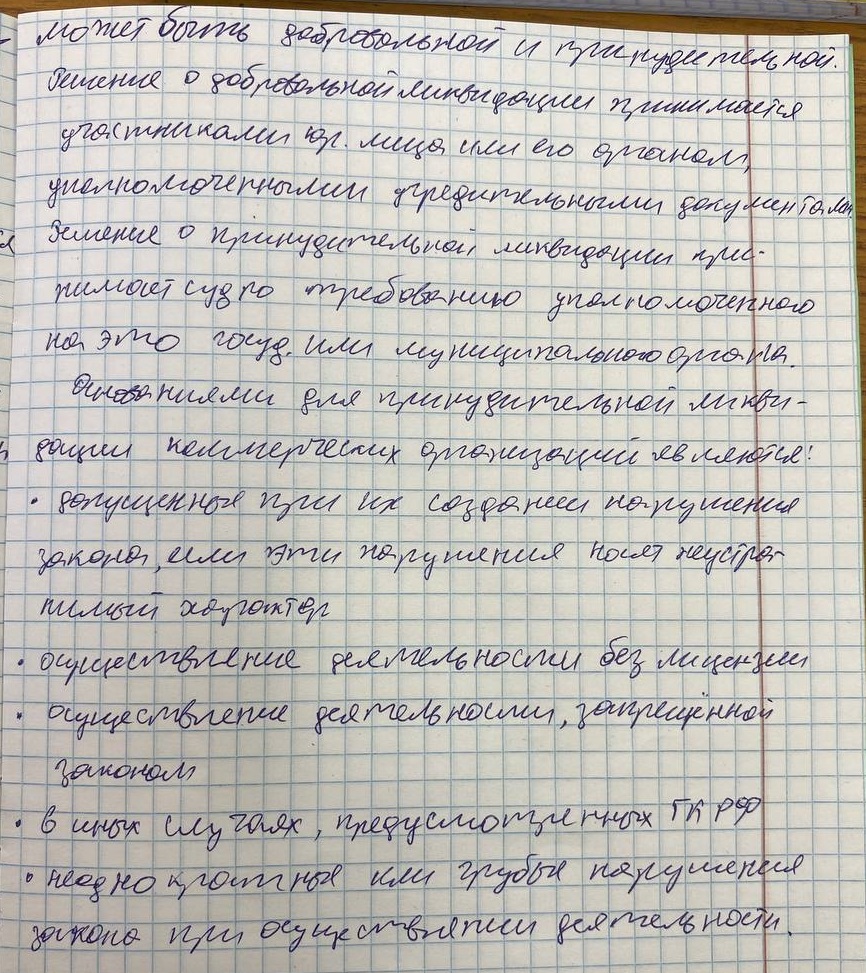 может быть добровольной и принудительной.
Решение о добровольной ликвидации принимается
участниками юр. лица или его органом,
уполномоченными учредительными документами
Решение о принудительной ликвидации при-
нимает суд по требованию уполномоченного
на это госуд. или муниципального органа.
Основаниями для принудительной ликви-
дации коммерческих организаций являются:
• допущенные при их создании нарушения
закона, или эти нарушения носят неустра-
нимый характер
• осуществление деятельности без лицензии
• осуществление деятельности, запрещённой
законом
• в иных случаях, предусмотренных ГК РФ
• неоднократные или грубые нарушения
закона при осуществлении деятельности.